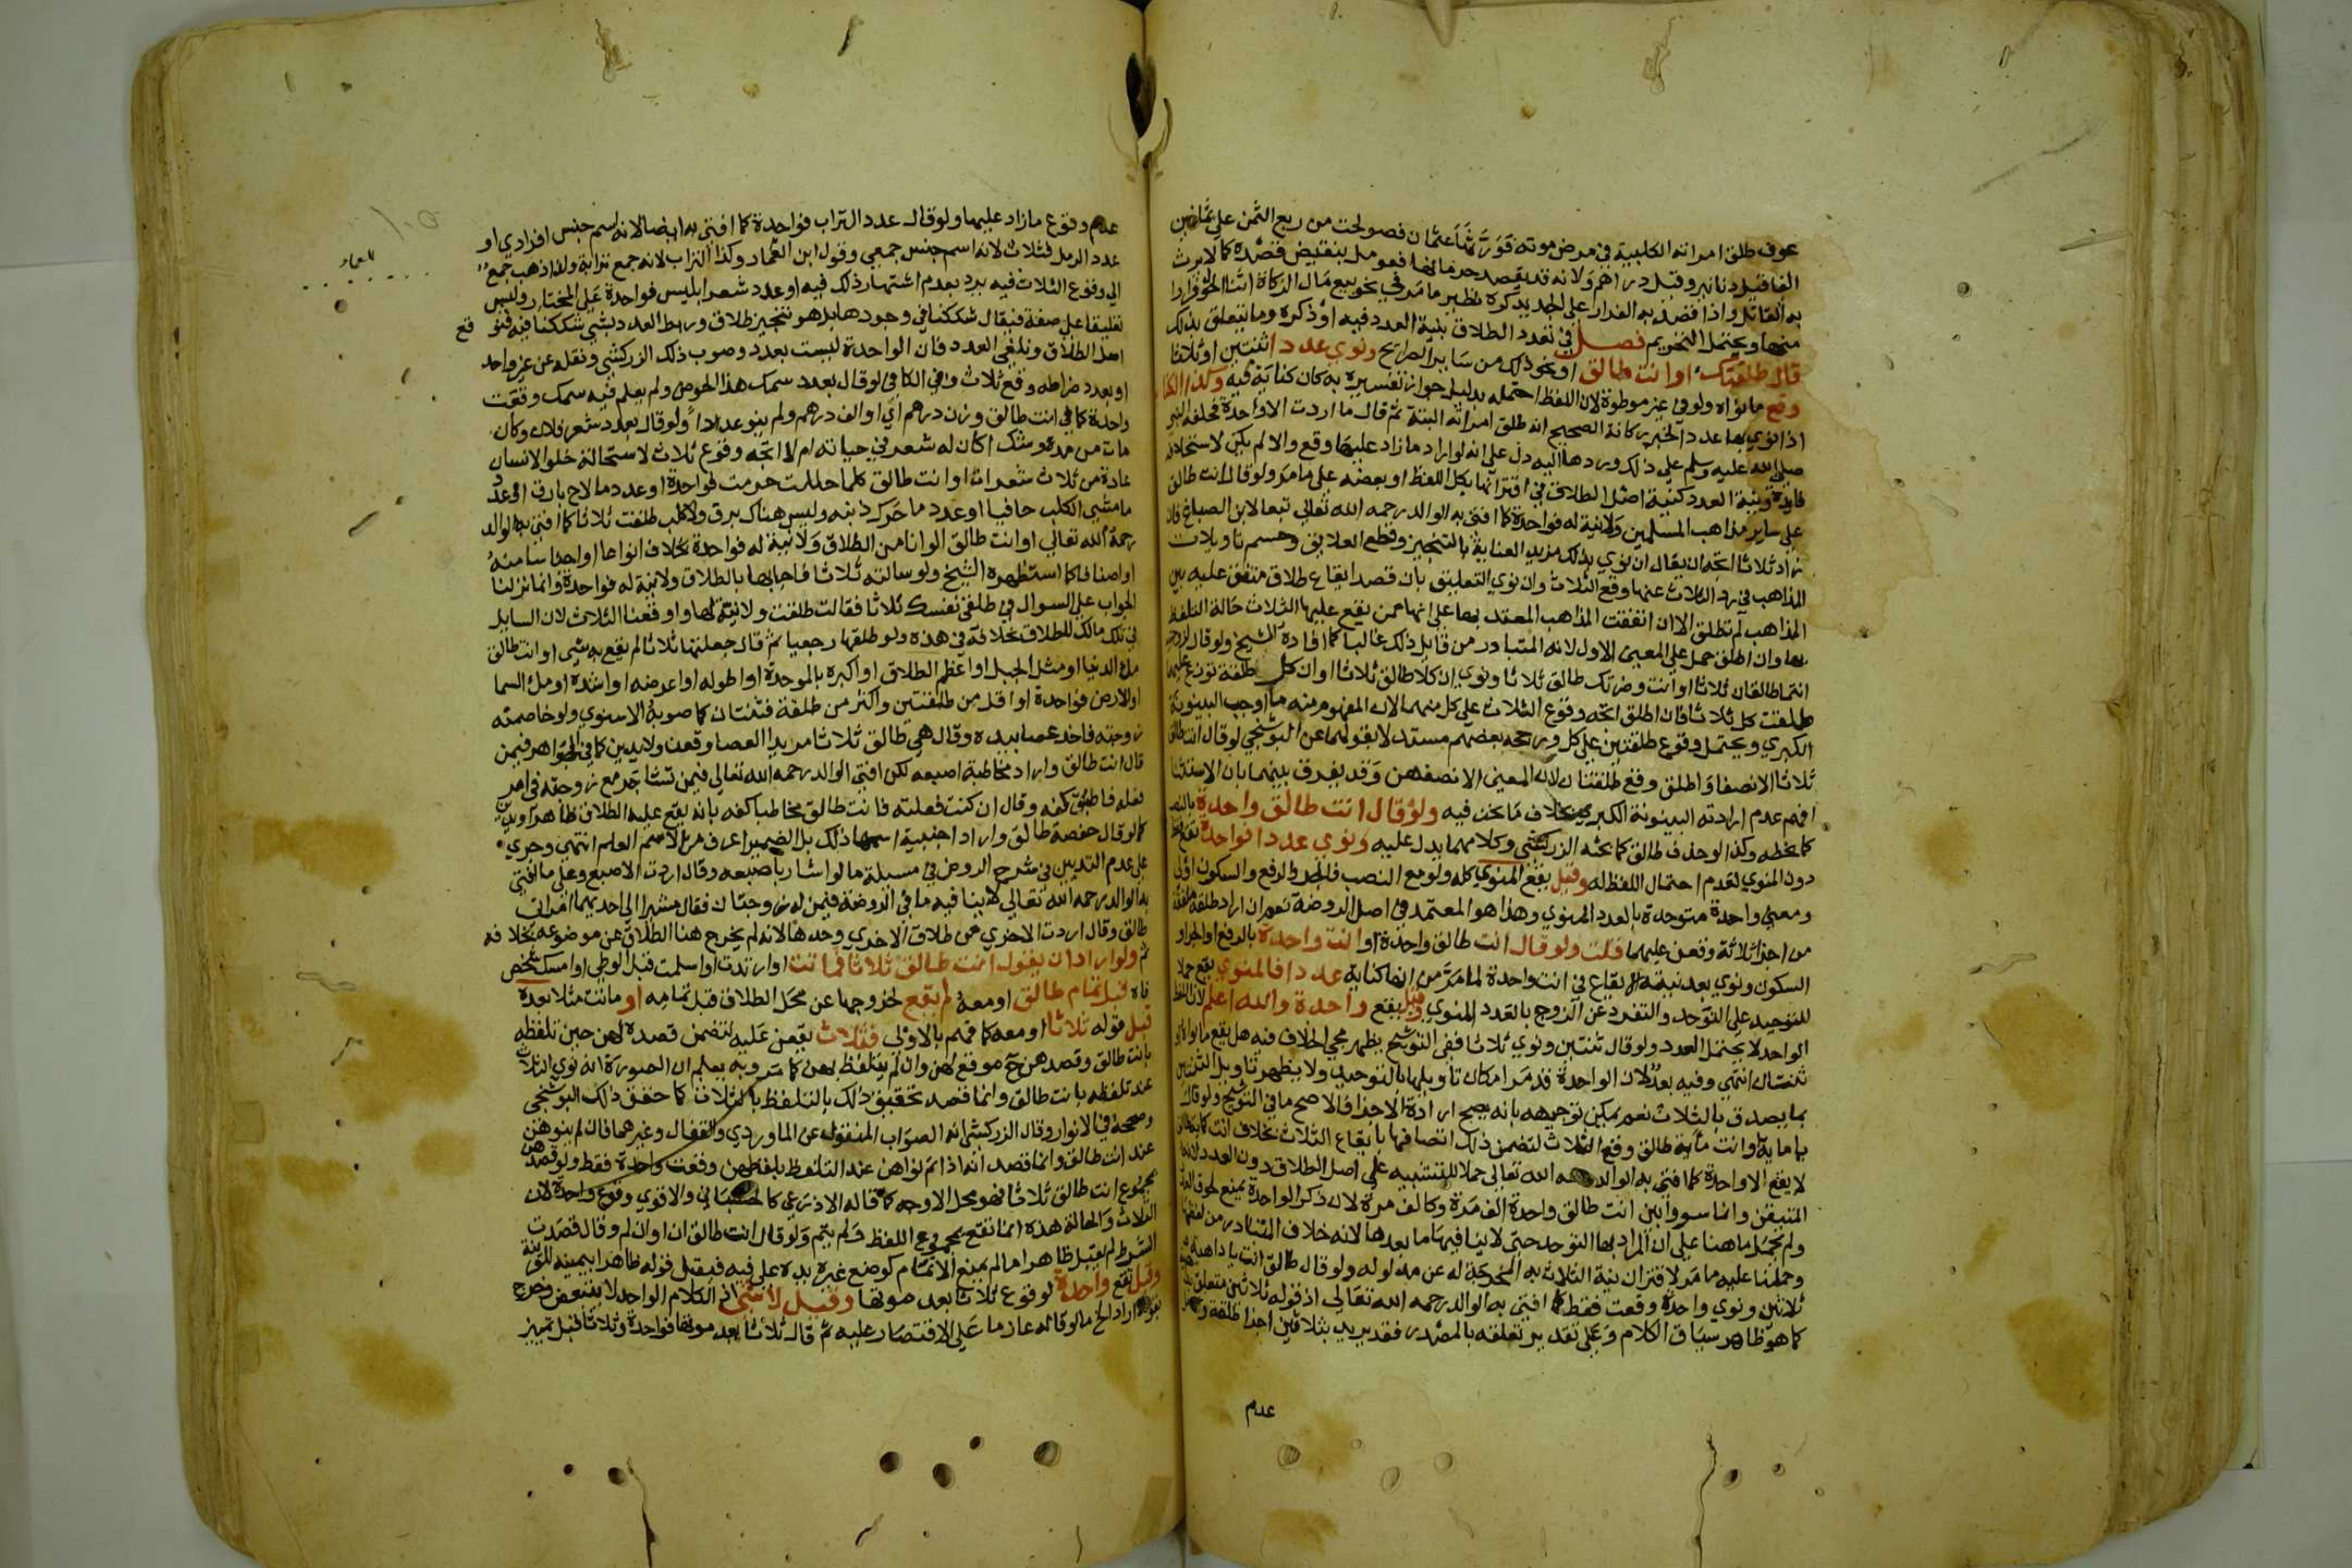 عوف طلق امراته الكلبية في مرض موته فورثها عثمان فصولحت من ربع الثمن على ثمانين
الفا قيل دنانير وقيل دراهم ولانه قد يقصد حرمانها فعومل بنقيض قصده كما لا يرث
به القاتل واذا قصد به الفرار على الجديد كره نظير ما مر في نحو بيع مال الزكاة اثنا الحول فرارا
منها ويحتمل التحريم فصل في تعدد الطلاق بنية العدد فيه او ذكره وما يتعلق بذلك
قال طلقتك او انت طالق او نحو ذلك من ساير الصرايح ونوى عددا اثنتين او ثلاثا
وقع ما نواه ولو في غير موطوة لان اللفظ احتمله بدليل جواز تفسيره به كان كناية فيه وكذا الكنا
اذا نوى بها عددا لخبر ركانة الصحيح انه طلق امراته البتة ثم قال ما اردت الا واحدة فحلفه النبي
صلى الله عليه وسلم على ذلك وردها اليه دل على انه لو اراد ما زاد عليها وقع والا لم يكن لاستحلافه
فايدة ونية العدد كنية اصل الطلاق في اقترانها بكل اللفظ او بعضه على ما مر ولو قال انت طالق
على ساير مذاهب المسلمين ولا نية له فواحدة كما افتى به الوالد رحمه الله تعالى تبعا لابن الصباغ فان
زاد ثلاثا اتجه ان يقال ان نوى بذلك مزيد العناية بالتنجيز وقطع العلايق وحسم تاويلات
المذاهب في رد الثلاث عنها وقع الثلاث وان نوى التعليق بان قصد ايقاع طلاق متفق عليه بين
المذاهب لم تطلق الا ان اتفقت المذاهب المعتد بها على انها ممن يقع عليها الثلاث حالة التلفظ
بها وان اطلق حمل على المعنى الاول لانه المتبادر من قايل ذلك غالبا كما افاده الشيخ ولو قال لزوجتيه
انتما طالقان ثلاثا او انت وضرتك طالق ثلاثا ونوى ان كلا طالق ثلاثا او ان كل طلقة توزع عليهما
طلقت كل ثلاثا فان اطلق اتجه وقوع الثلاث على كل منهما لان المفهوم منه ما اوجب البينونة
الكبرى ويحتمل وقوع طلقتين على كل ورجحه بعضهم مستدلا بقولهما عن البوشنجي لو قال انت طالق
ثلاثا الا نصفا واطلق وقع طلقتان لان المعنى الا نصفهن وقد يفرق بينهما بان الاستثنا
افهم عدم ارادته البينونة الكبرى بخلاف ما نحن فيه ولو قال انت طالق واحدة بالنصب
كما بخطه وكذا لو حذف طالق كما بحثه الزركشي وكلامهما يدل عليه ونوى عددا فواحدة تقع
دون المنوي لعدم احتمال اللفظ له وقيل يقع المنوي كله ولو مع النصب فالجر والرفع والسكون اولى
ومعنى واحدة متوحدة بالعدد المنوي وهذا هو المعتمد في اصل الروضة نعم ان اراد طلقة ملفقة
من اجزا ثلاثة وقعن عليهما قلت ولو قال انت طالق واحدة او انت واحدة بالرفع او الجر او
السكون ونوى بعد نية الايقاع في انت واحدة لما مر من انها كناية عددا فالمنوي يقع حملا
للتوحيد على التوحد والتفرد عن الزوج بالعدد المنوي وقيل يقع واحدة والله اعلم لان لفظ
الواحد لا يحتمل العدد ولو قال ثنتين ونوى ثلاثا ففي التوشيح يظهر مجي الخلاف فيه هل يقع ما نواه او
ثنتان انتهى وفيه بعد لان الواحدة قد مر امكان تاويلها بالتوحيد ولا يظهر تاويل الثنتين
بما يصدق بالثلاث نعم يمكن توجيهه بانه يصح ارادة الاجزا فالاصح ما في التوشيح ولو قال
يا ماية او انت ماية طالق وقع الثلاث لتضمن ذلك اتصافها بايقاع الثلاث بخلاف انت كماية طالق
لا يقع الا واحدة كما افتى به الوالد رحمه الله تعالى حملا للتشبيه على اصل الطلاق دون العدد لانه
المتيقن وانما سووا بين انت طالق واحدة الف مرة وكالف مرة لان ذكر الواحدة يمنع لحوق العدد
ولم نحمل ما هنا على ان المراد بها التوحد حتى لا ينافيها ما بعدها لانه خلاف المتبادر من لفظها
وحملنا عليه ما مر لاقتران نية الثلاث به المخرجة له عن مدلوله ولو قال طالق انت يا داهية
ثلاثين ونوى واحدة وقعت فقط كما افتى به الوالد رحمه الله تعالى اذ قوله ثلاثين متعلق
كما هو ظاهر سياق الكلام وعلى تقدير تعلقه بالمصدر فقد يريد بثلاثين اجزا طلقة و
عدم
عدم وقوع ما زاد عليها ولو قال عدد التراب فواحدة كما افتى به ايضا لانه اسم جنس افرادي او
عدد الرمل فثلاث لانه اسم جنس جمعي وقول ابن العماد وكذا التراب لانه جمع ترابة ولذا ذهب جمع
الى وقوع الثلاث فيه يرد بعدم اشتهار ذلك فيه او عدد شعر ابليس فواحدة على المختار وليس
تعليقا على صفة فيقال شككنا في وجودها بل هو تنجيز طلاق وربط العدد بشي شككنا فيه فنوقع
اصل الطلاق ونلغي العدد فان الواحدة ليست بعدد وصوب ذلك الزركشي ونقله عن غير واحد
او بعدد ضراطه وقع ثلاث وفي الكافي لو قال بعدد سمك هذا الحوض ولم يعلم فيه سمك وقعت
واحدة كما في انت طالق وزن درهم اي او الف درهم ولم ينو عددا ولو قال بعدد شعر فلان وكان
مات من مدة وشك اكان له شعر في حياته ام لا اتجه وقوع ثلاث لاستحالة خلو الانسان
عادة من ثلاث شعرات او انت طالق كلما حللت حرمت فواحدة او عدد ما لاح بارق او عدد
ما مشى الكلب حافيا او عدد ما حرك ذنبه وليس هناك برق ولا كلب طلقت ثلاثا كما افتى به الوالد
رحمه الله تعالى او انت طالق الوانا من الطلاق ولا نية له فواحدة بخلاف انواعا او اجناسا منه
او اصنافا كما استظهره الشيخ ولو سالته ثلاثا فاجابها بالطلاق ولا نية له فواحدة وانما نزلنا
الجواب على السوال في طلقي نفسك ثلاثا فقالت طلقت ولا نية لها واوقعنا الثلاث لان السايل
في تلك مالك للطلاق بخلافه في هذه ولو طلقها رجعيا ثم قال جعلتها ثلاثا لم يقع به شي او انت طالق
ملا الدنيا او مثل الجبل او اعظم الطلاق او اكبره بالموحدة او اطوله او اعرضه او اشده او ملا السما
او الارض فواحدة او اقل من طلقتين واكثر من طلقة فثنتان كما صوبه الاسنوي ولو خاصمته
زوجته فاخذ عصا بيده وقال هي طالق ثلاثا مريدا العصا وقعن ولا يدين كما في الجواهر فيمن
قال انت طالق واراد مخاطبة اصبعه لكن افتى الوالد رحمه الله تعالى فيمن تشاجر مع زوجته في امر
فعله فاطبق كفه وقال ان كنت فعلته فانت طالق مخاطبا كفه بانه يقع عليه الطلاق ظاهرا ويدين
كما لو قال حفصة طالق واراد اجنبية اسمها ذلك بل الضمير اعرف من الاسم العلم انتهى وجرى
على عدم التديين في شرح الروض في مسيلة ما لو اشار باصبعه وقال اردت الاصبع وعلى ما افتى
به الوالد رحمه الله تعالى لا ينافيه ما في الروضة فيمن له زوجتان فقال مشيرا الى احديهما امراتي
طالق وقال اردت الاخرى من طلاق الاخرى وحدها لانه لم يخرج هنا الطلاق عن موضوعه بخلافه
ثم ولو اراد ان يقول انت طالق ثلاثا فماتت او ارتدت او اسلمت قبل الوطي او امسك شخص
فاه قبل تمام طالق او معه لم يقع لخروجها عن محل الطلاق قبل تمامه او ماتت مثلا بعده
قبل قوله ثلاثا او معه كما فهم بالاولى فثلاث يقعن عليه لتضمن قصده لهن حين تلفظه
بانت طالق وقصدهن ح موقع لهن وان لم يتلفظ بهن كما مر وبه يعلم ان الصورة انه نوى الثلاث
عند تلفظه بانت طالق وانما قصد تحقيق ذلك بالتلفظ بالثلاث كما حقق ذلك البوشنجي
وصححه في الانوار وقال الزركشي انه الصواب المنقول عن الماوردي والقفال وغيرهما فان لم ينوهن
عند انت طالق وانما قصد انه اذا تم نواهن عند التلفظ بلفظهن وقعت واحدة فقط ولو قصدهن
بمجموع انت طالق ثلاثا فهو محل الاوجه كما قاله الاذرعي كالحسباني والاقوى وقوع واحدة لان
الثلاث والحالة هذه انما تقع بمجموع اللفظ ولم يتم ولو قال انت طالق ان او ان لم وقال قصدت
الشرط لم يقبل ظاهرا ما لم يمنع الاتمام كوضع غيره يده على فيه فيقبل قوله ظاهرا بيمينه للقرينة
وقيل تقع واحدة لوقوع ثلاثا بعد موتها وقيل لا شي اذ الكلام الواحد لا يتبعض وخرج
بقوله اراد الخ ما لو قاله عازما على الاقتصار عليه ثم قال ثلاثا بعد موتها فواحدة وثلاثا قبل تمييز